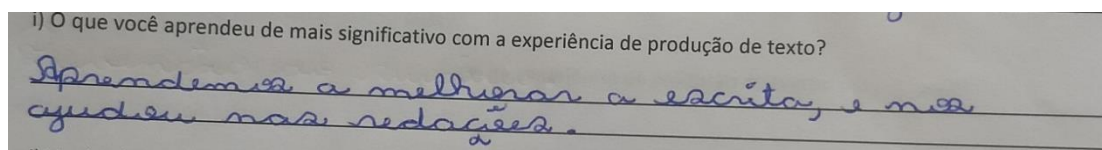 i) O que você aprendeu de mais significativo com a experiência de produção de texto?
Aprendemos a melhorar a escrita, e nos
ajudou nas redações.